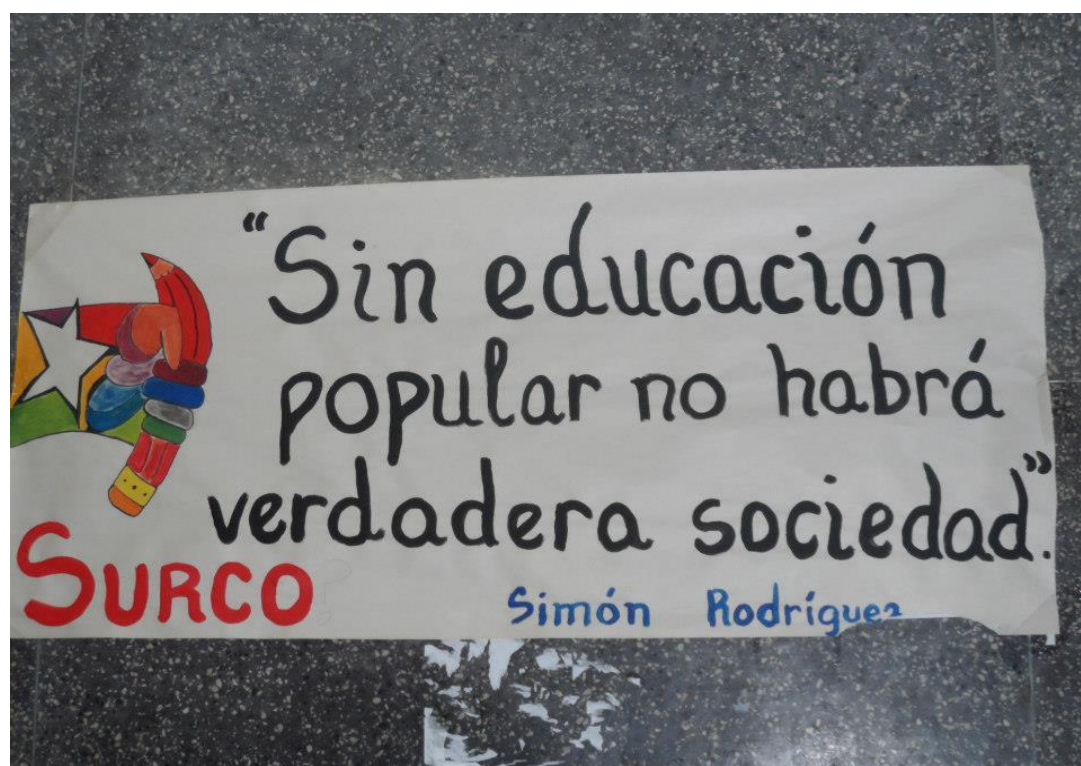 “Sin educación
popular no habrá
verdadera sociedad”.
SURCO
Simón Rodríguez